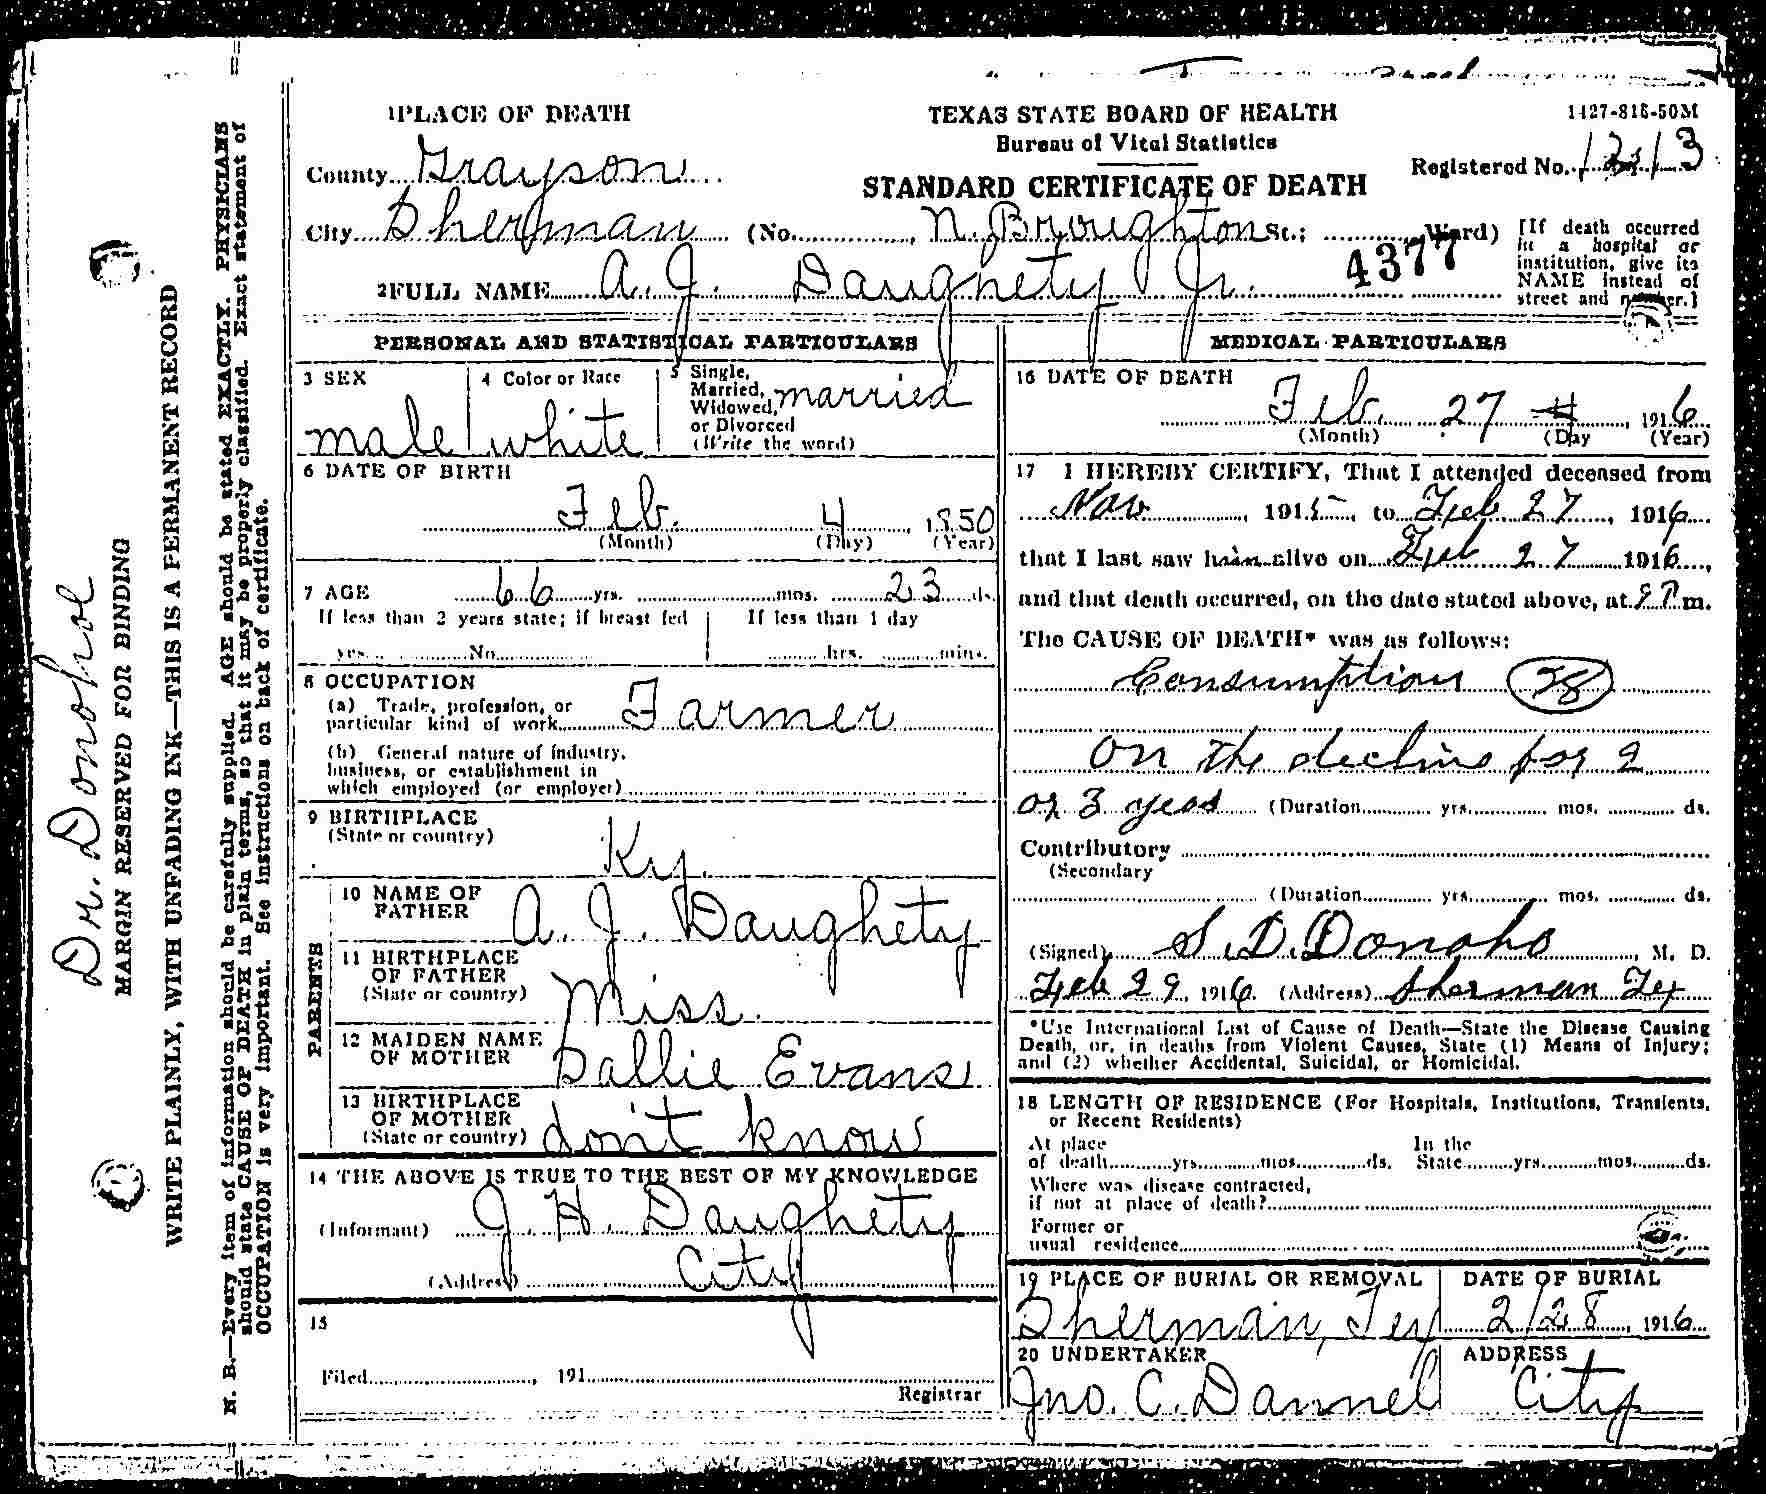 1 PLACE OF DEATH
TEXAS STATE BOARD OF HEALTH
Bureau of Vital Statistics
STANDARD CERTIFICATE OF DEATH
1427-815-50M
Registered No.
County Grayson
City Sherman (No. , N. Broughton St.; Ward)
[If death occurred in a hospital or institution, give its NAME instead of street and number.]
4377
2 FULL NAME A. J. Daughety Jr.
PERSONAL AND STATISTICAL PARTICULARS
3 SEX
male
4 Color or Race
white
5 Single,
Married,
Widowed,
or Divorced
(Write the word)
married
6 DATE OF BIRTH
Feb. 4, 1850
(Month) (Day) (Year)
7 AGE 66 yrs. mos. 23 ds.
If less than 2 years state; if breast fed
yes No
If less than 1 day
hrs. mins.
8 OCCUPATION
(a) Trade, profession, or
particular kind of work Farmer
(b) General nature of industry,
business, or establishment in
which employed (or employer)
9 BIRTHPLACE
(State or country)
Ky.
PARENTS
10 NAME OF
FATHER
A. J. Daughety
11 BIRTHPLACE
OF FATHER
(State or country)
Miss.
12 MAIDEN NAME
OF MOTHER
Sallie Evans
13 BIRTHPLACE
OF MOTHER
(State or country)
don't know
14 THE ABOVE IS TRUE TO THE BEST OF MY KNOWLEDGE
(Informant) J. H. Daughety
(Address) City
15
Filed , 191
Registrar
MEDICAL PARTICULARS
16 DATE OF DEATH
Feb. 27, 1916
(Month) (Day (Year)
17 I HEREBY CERTIFY, That I attended deceased from
Nov , 1915, to Feb 27, 1916
that I last saw him alive on Feb 27 1916,
and that death occurred, on the date stated above, at 9 P m.
The CAUSE OF DEATH* was as follows:
Consumption
On the decline for 2
or 3 years (Duration yrs. mos. ds.
Contributory
(Secondary
(Duration yrs. mos. ds.
(Signed) S. D. Donoho, M. D.
Feb 29, 1916. (Address) Sherman Tex
*Use International List of Cause of Death—State the Disease Causing
Death, or, in deaths from Violent Causes, State (1) Means of Injury;
and (2) whether Accidental, Suicidal, or Homicidal.
18 LENGTH OF RESIDENCE (For Hospitals, Institutions, Transients,
or Recent Residents)
At place
of death yrs. mos. ds.
In the
State yrs. mos. ds.
Where was disease contracted,
if not at place of death?
Former or
usual residence
19 PLACE OF BURIAL OR REMOVAL
Sherman, Tex
DATE OF BURIAL
2/28, 1916
20 UNDERTAKER
Jno. C. Dannel
ADDRESS
City
Dr. Donohoe
MARGIN RESERVED FOR BINDING
WRITE PLAINLY, WITH UNFADING INK—THIS IS A PERMANENT RECORD
N. B.—Every item of information should be carefully supplied. AGE should be stated EXACTLY. PHYSICIANS
should state CAUSE OF DEATH in plain terms, so that it may be properly classified. Exact statement of
OCCUPATION is very important. See instructions on back of certificate.